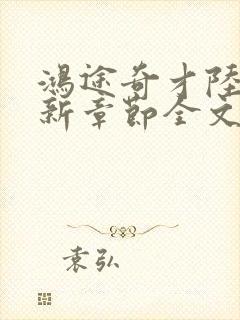 鴻途奇才陸
新章節全文
袁弘